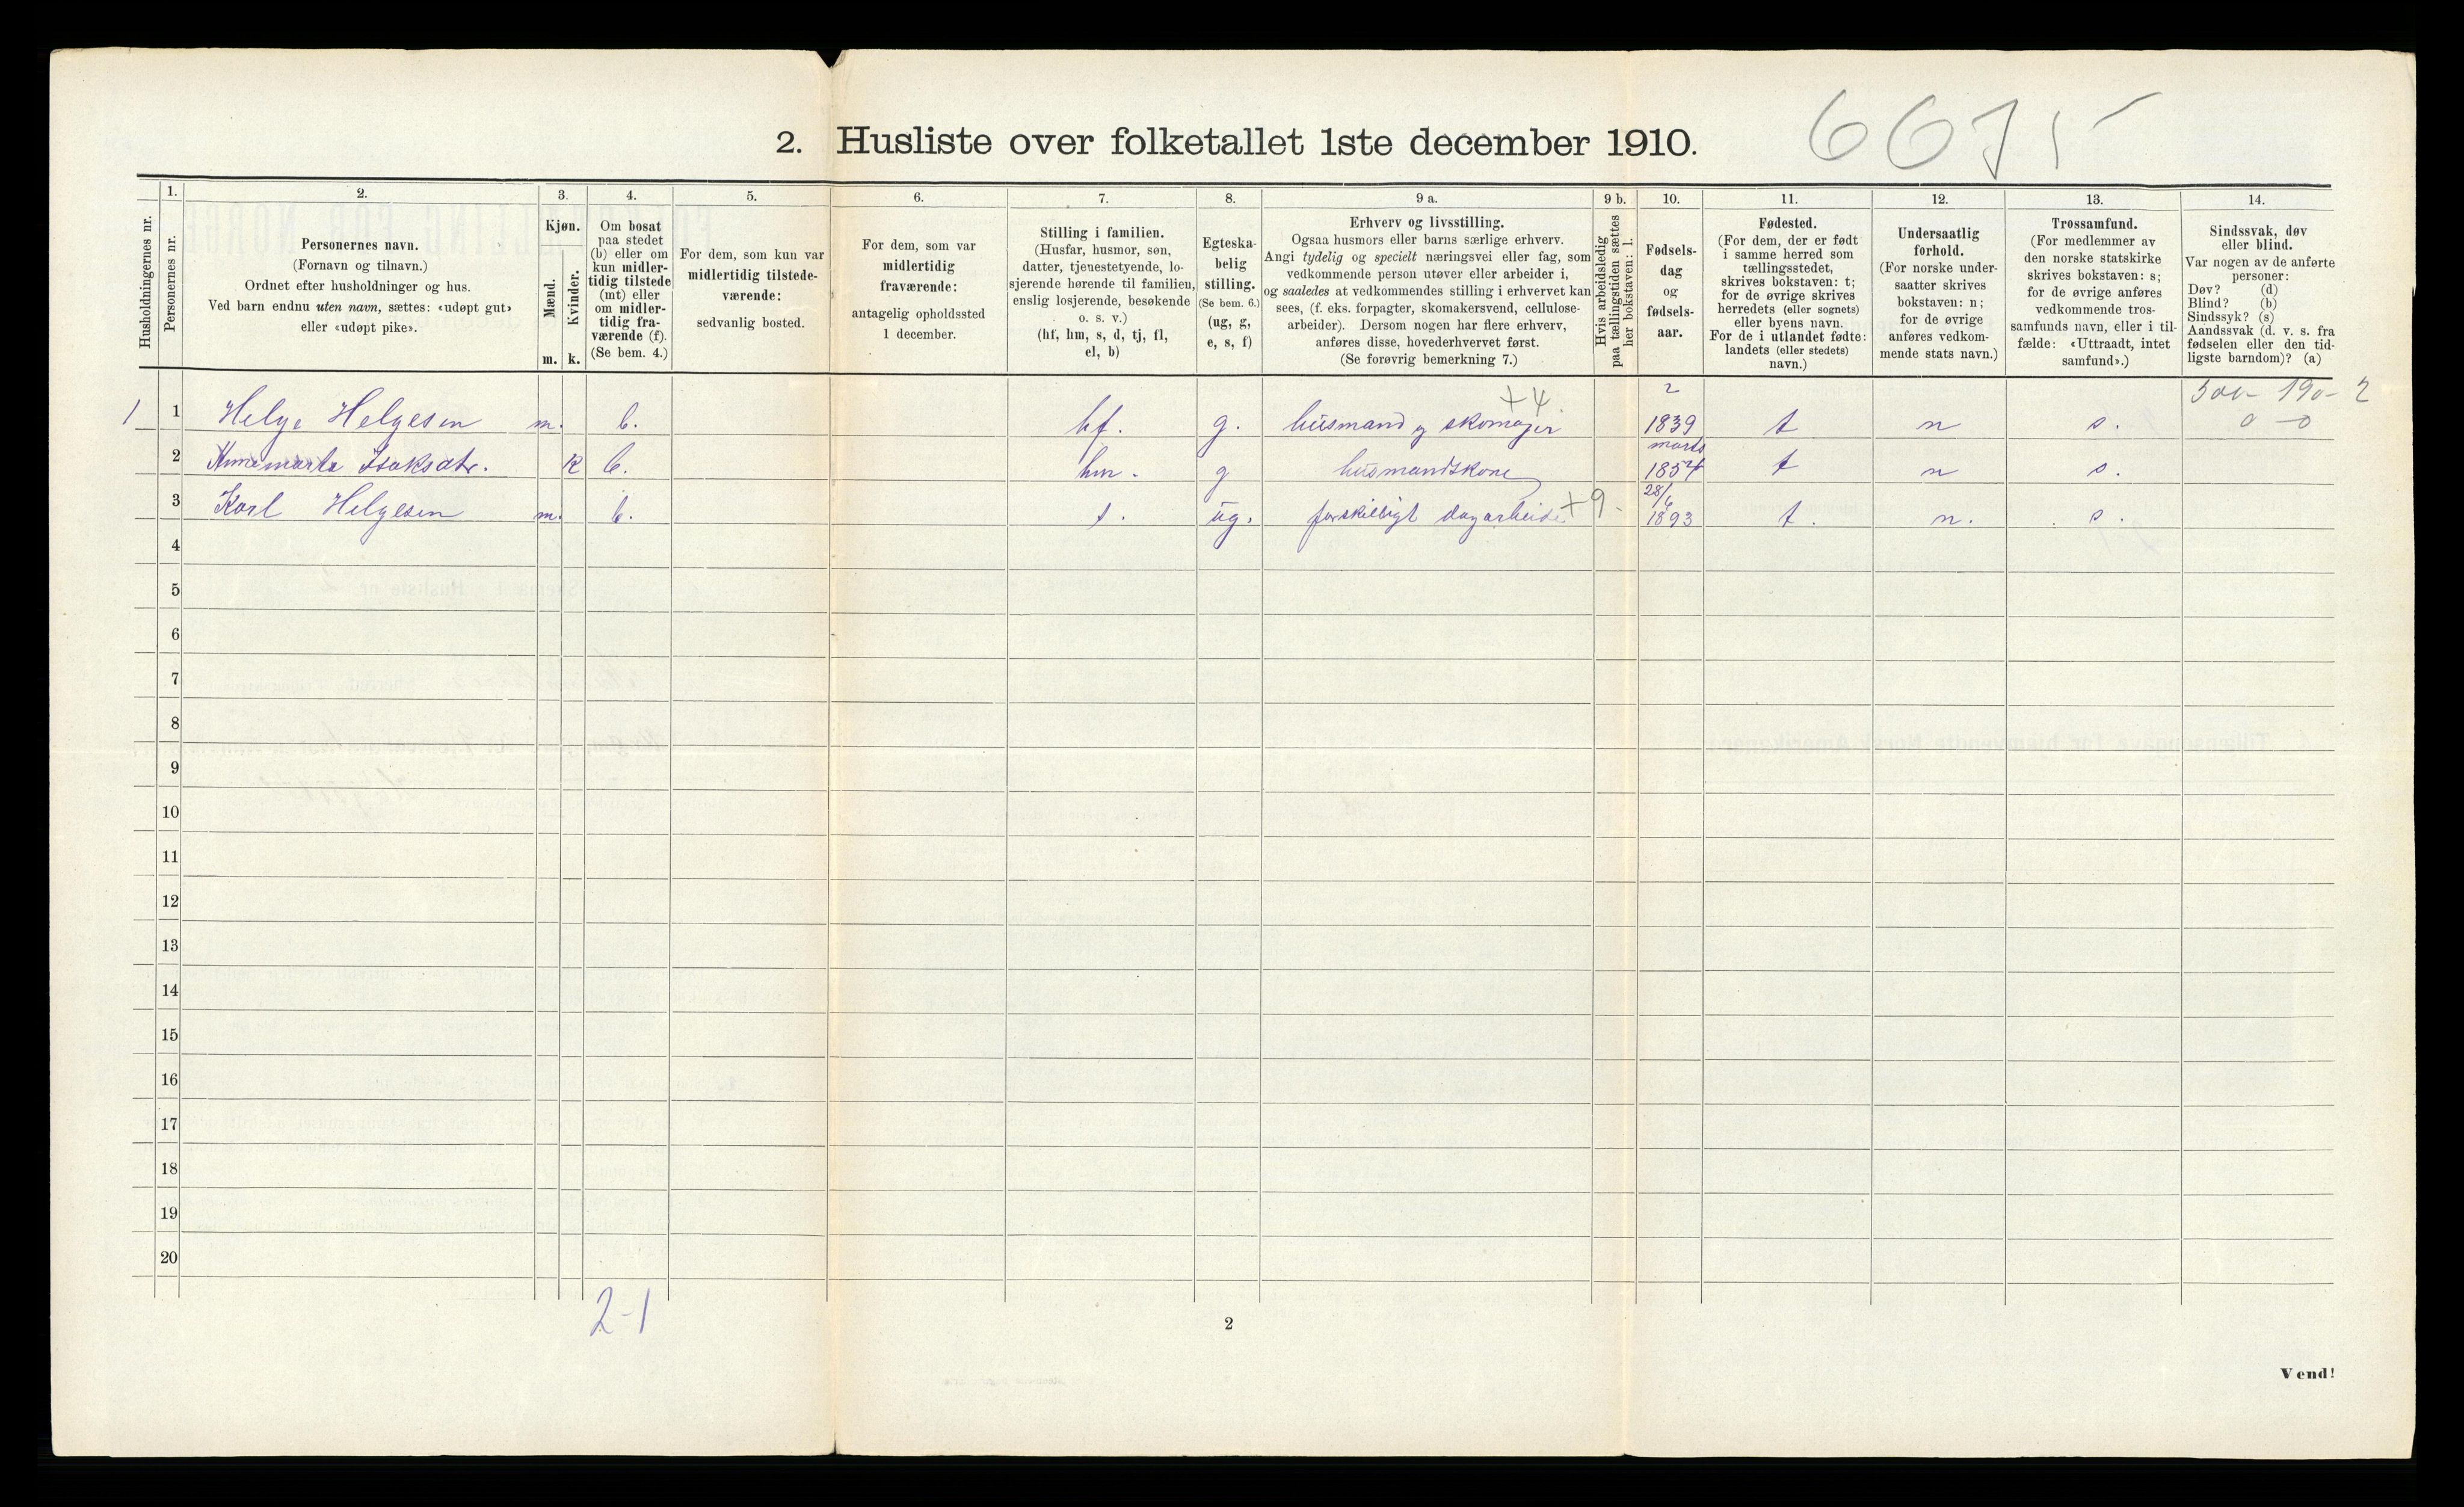 2. Husliste over folketallet 1ste december 1910.
Husholdningernes nr.
1.
Personernes nr.
2.
Personernes navn.
(Fornavn og tilnavn.)
Ordnet efter husholdninger og hus.
Ved barn endnu uten navn, sættes: «udøpt gut»
eller «udøpt pike».
3.
Kjøn.
Mænd.
Kvinder.
m. k.
4.
Om bosat
paa stedet
(b) eller om
kun midler-
tidig tilstede
(mt) eller
om midler-
tidig fra-
værende (f).
(Se bem. 4.)
5.
For dem, som kun var
midlertidig tilstede-
værende:
sedvanlig bosted.
6.
For dem, som var
midlertidig
fraværende:
antagelig opholdssted
1 december.
7.
Stilling i familien.
(Husfar, husmor, søn,
datter, tjenestetyende, lo-
sjerende hørende til familien,
enslig losjerende, besøkende
o. s. v.)
(hf, hm, s, d, tj, fl,
el, b)
8.
Egteska-
belig
stilling.
(Se bem. 6.)
(ug, g,
e, s, f)
9 a.
Erhverv og livsstilling.
Ogsaa husmors eller barns særlige erhverv.
Angi tydelig og specielt næringsvei eller fag, som
vedkommende person utøver eller arbeider i,
og saaledes at vedkommendes stilling i erhvervet kan
sees, (f. eks. forpagter, skomakersvend, cellulose-
arbeider). Dersom nogen har flere erhverv,
anføres disse, hovederhvervet først.
(Se forøvrig bemerkning 7.)
9 b.
Hvis arbeidsledig
paa tællingstiden sættes
her bokstaven: l.
10.
Fødsels-
dag
og
fødsels-
aar.
11.
Fødested.
(For dem, der er født
i samme herred som
tællingsstedet,
skrives bokstaven: t;
for de øvrige skrives
herredets (eller sognets)
eller byens navn.
For de i utlandet fødte:
landets (eller stedets)
navn.)
12.
Undersaatlig
forhold.
(For norske under-
saatter skrives
bokstaven: n;
for de øvrige
anføres vedkom-
mende stats navn.)
13.
Trossamfund.
(For medlemmer av
den norske statskirke
skrives bokstaven: s;
for de øvrige anføres
vedkommende tros-
samfunds navn, eller i til-
fælde: «Uttraadt, intet
samfund».)
14.
Sindssvak, døv
eller blind.
Var nogen av de anførte
personer:
Døv? (d)
Blind? (b)
Sindssyk? (s)
Aandssvak (d. v. s. fra
fødselen eller den tid-
ligste barndom)? (a)
1 1 Helge Helgesen m. b. hf. g. husmand og skomager +4. 1839 t n s. 0 0
2 Annemarta Isaksdtr. k b. hm. g husmandskone marts 1854 t n s.
3 Karl Helgesen m. b. s. ug. forskelligt dagarbeide +9 28/6 1893 t. n. s.
4
5
6
7
8
9
10
11
12
13
14
15
16
17
18
19
20
2-1
2
Vend!